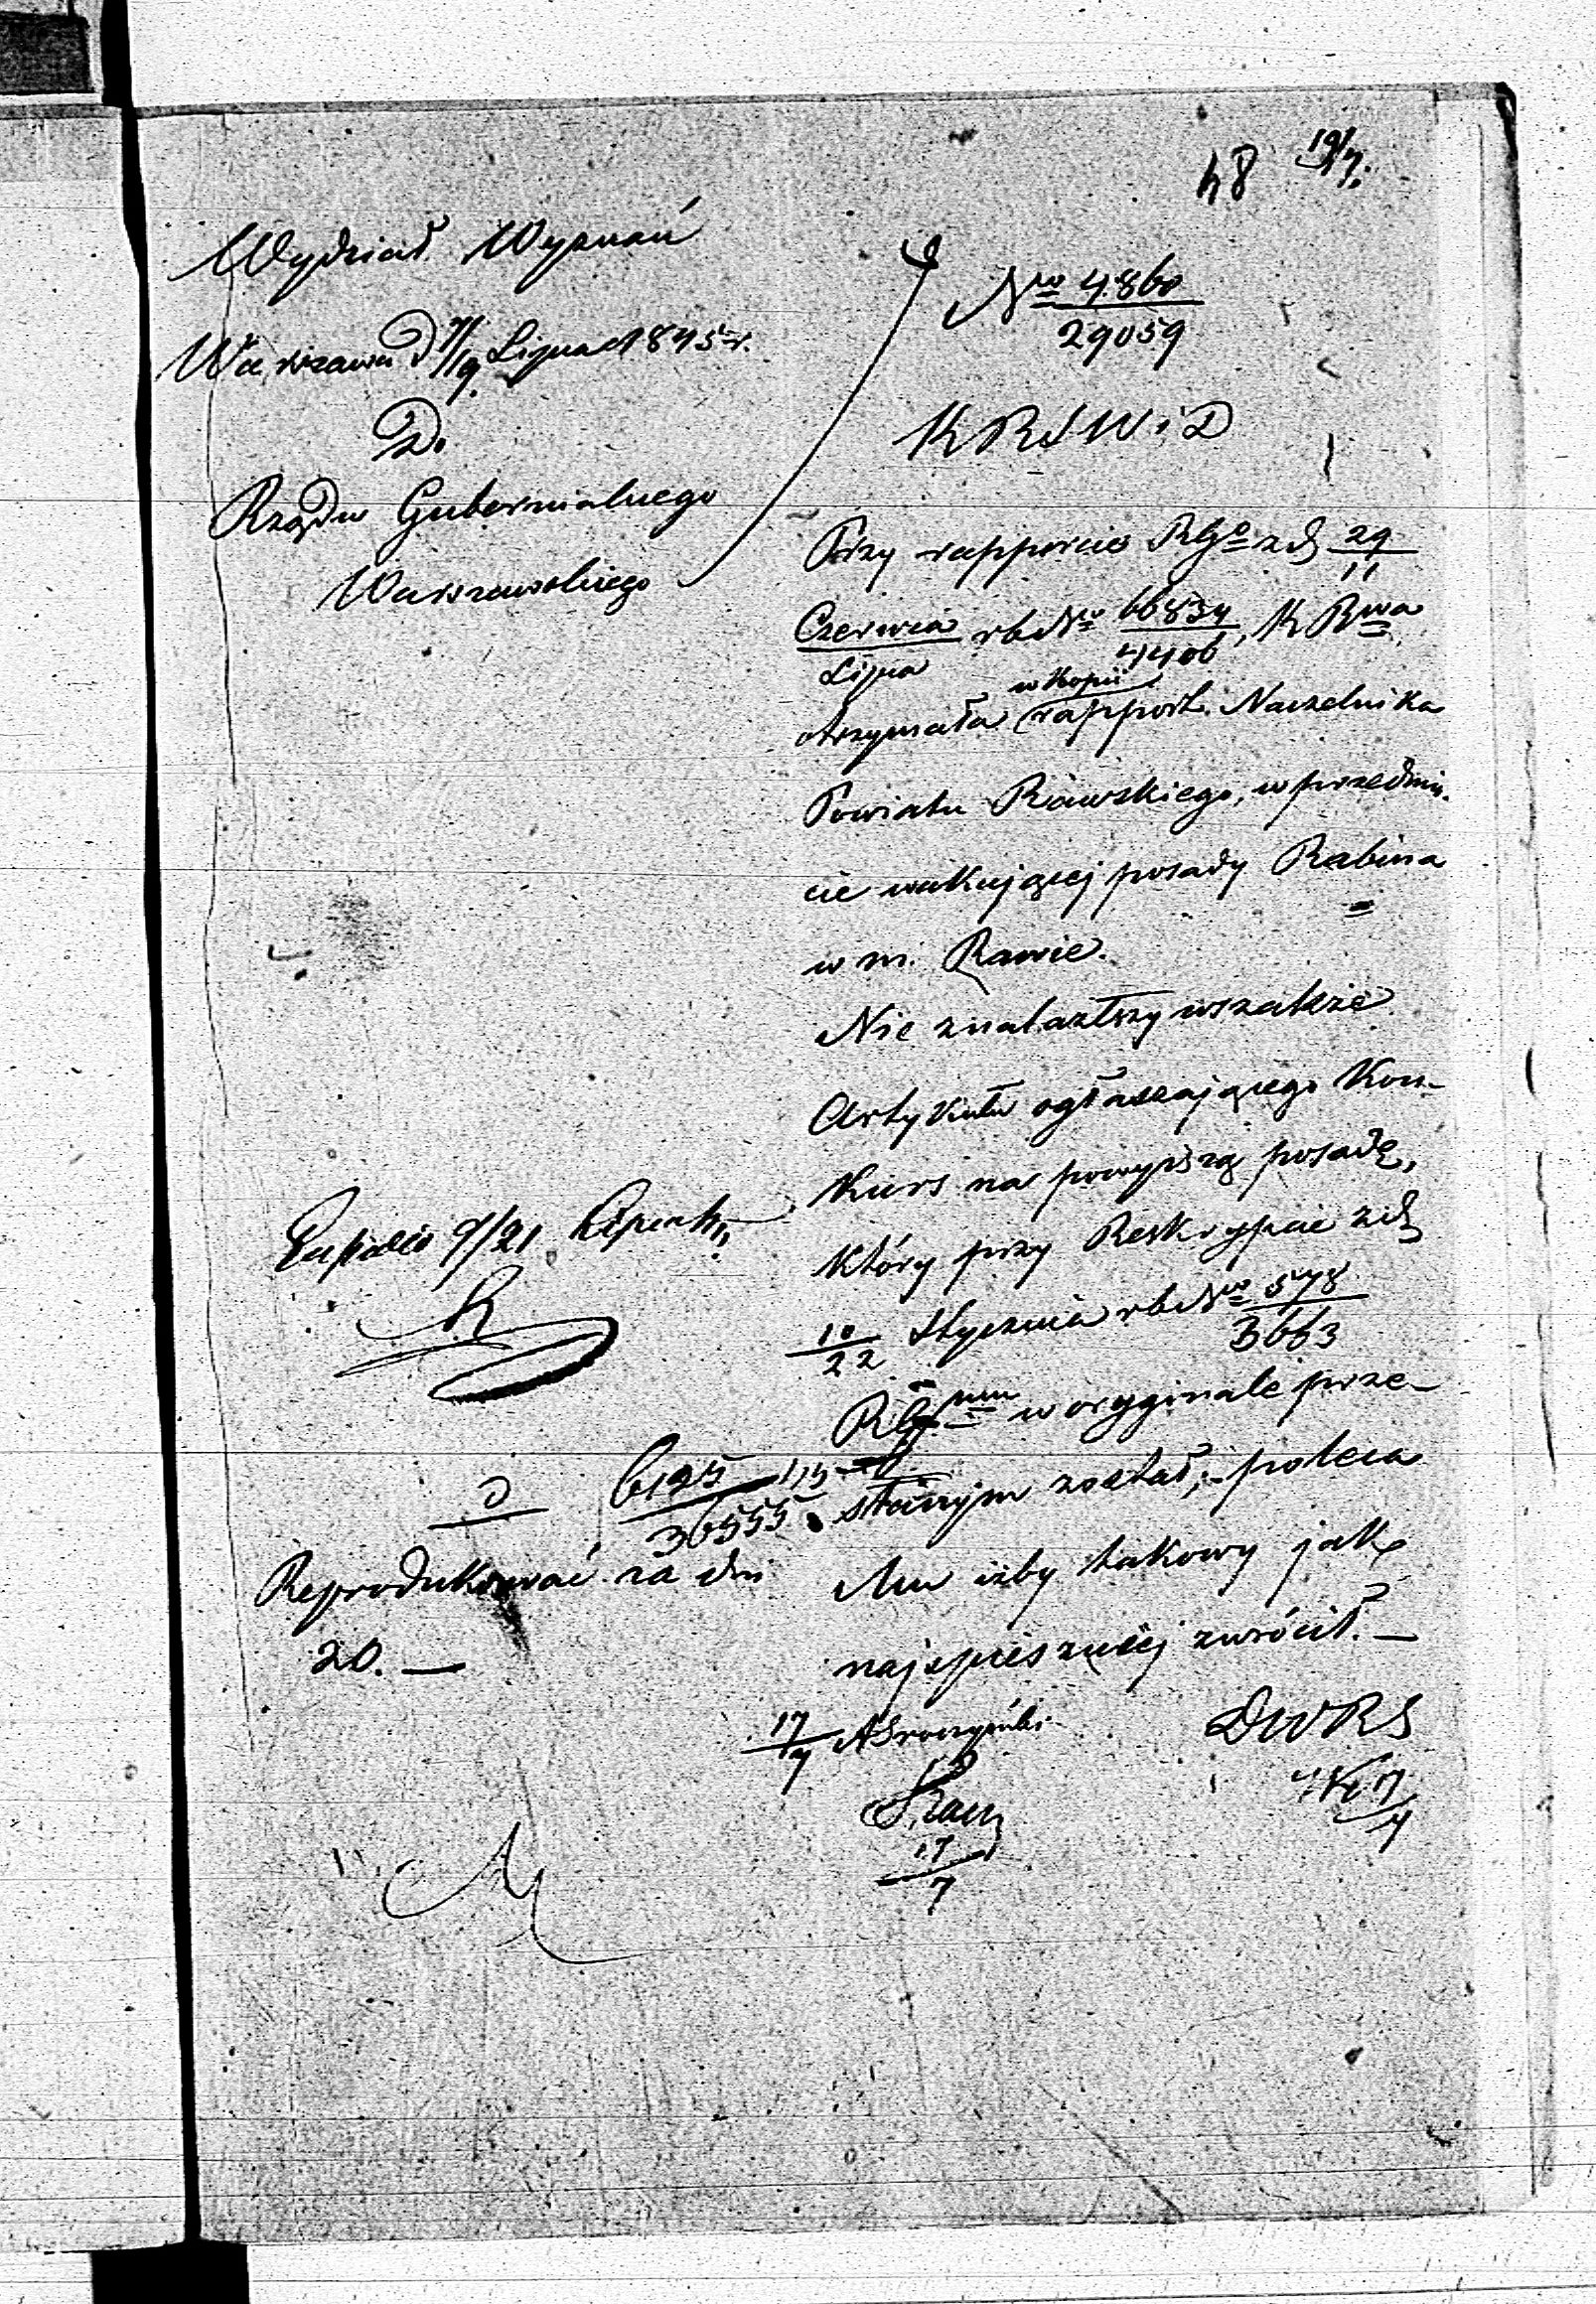 48 19/7.
Wydział Wyznań
Warszawa d 7/19 Lipca 1845 r.
Do
Rządu Gubernialnego
Warszawskiego
Nro 4860/29059
KRSWiD
Przy rapporcie RGo z d 29/11
Czerwca/Lipca rb Nro 66834/4406, KRwa
w Kopii
otrzymała rapport Naczelnika
Powiatu Rawskiego, w przedmio-
cie wakującej posady Rabina
w m. Rawie.
Nie znalazłszy wszakże
Artykułu ogłaszającego Kon-
kurs na powyższą posadę,
który przy Reskrypcie z d
10/22 Stycznia rb Nro 578/3663
RGmu w oryginale prze-
słanym został, - poleca
Mu iżby takowy jak
najspieszniej zwrócił. -
9/21
6195/36555
Reprodukować za dni
20. —
17/7
DWRS
17/7
17/7